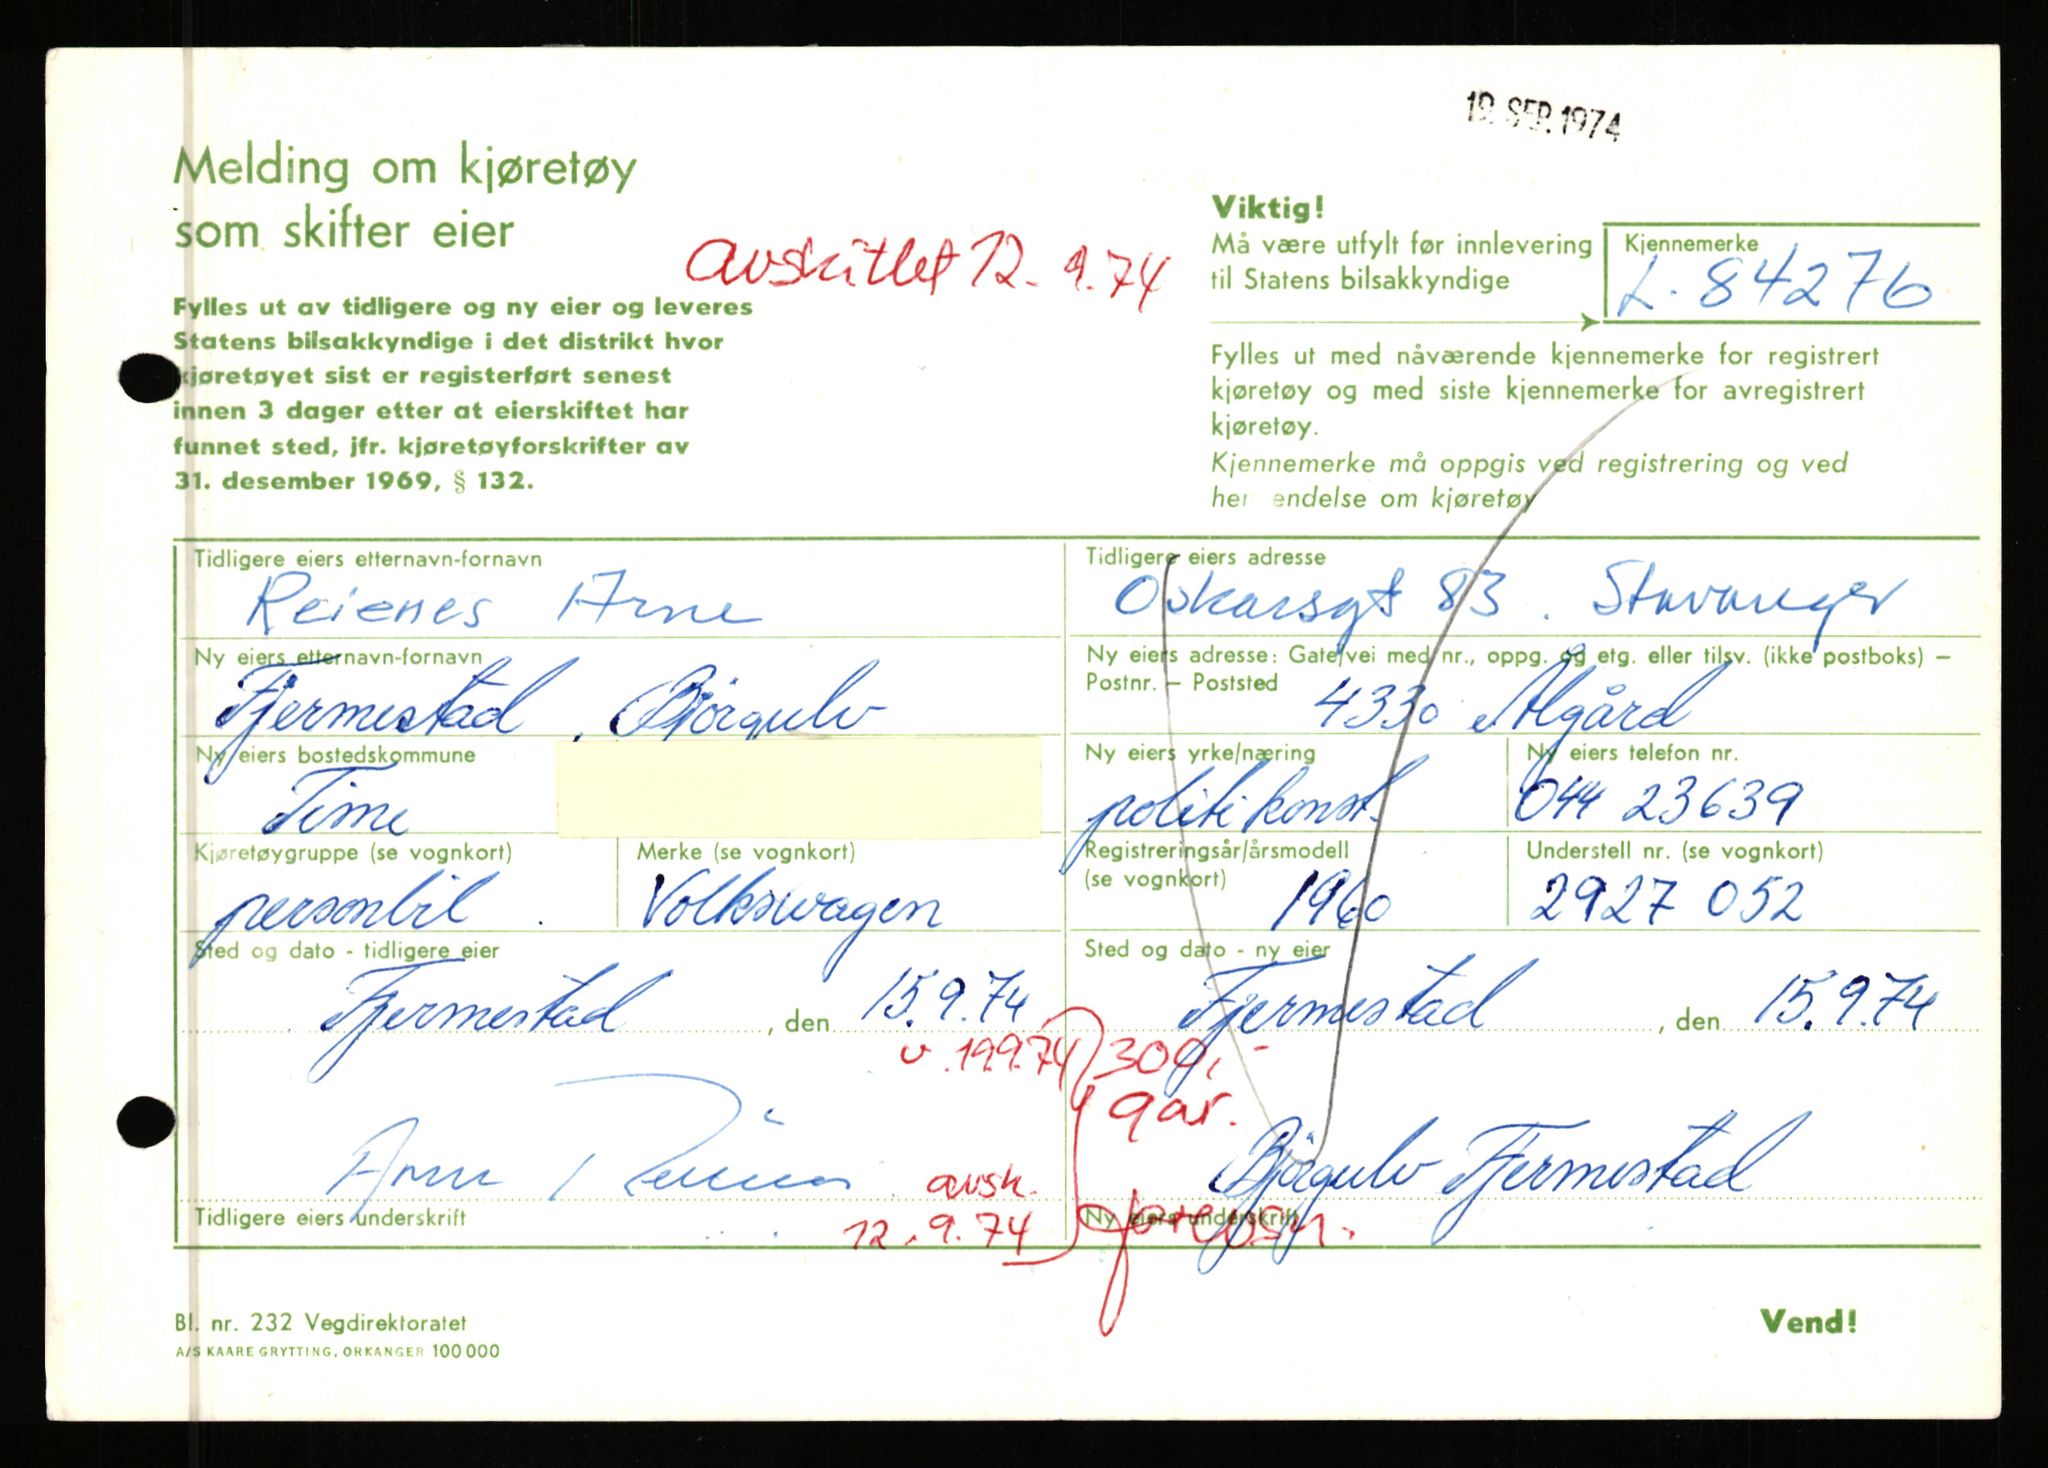 19. SEP. 1974
Melding om kjøretøy
som skifter eier
avskiltet 12. 9.74
Fylles ut av tidligere og ny eier og leveres
Statens bilsakkyndige i det distrikt hvor
kjøretøyet sist er registerført senest
innen 3 dager etter at eierskiftet har
funnet sted, jfr. kjøretøyforskrifter av
31. desember 1969, § 132.
Viktig!
Må være utfylt før innlevering
til Statens bilsakkyndige
Kjennemerke
L. 84276
Fylles ut med nåværende kjennemerke for registrert
kjøretøy og med siste kjennemerke for avregistrert
kjøretøy.
Kjennemerke må oppgis ved registrering og ved
endelse om kjøretøy
Tidligere eiers etternavn-fornavn
Reienes Arne
Tidligere eiers adresse
Oskarsgt 83. Stavanger
Ny eiers etternavn-fornavn
Fjermestad, Bjørgulv
Ny eiers adresse: Gate/vei med nr., oppg. og etg. eller tilsv. (ikke postboks) —
Postnr. — Poststed
4330 Ålgård
Ny eiers bostedskommune
Time
Ny eiers yrke/næring
politikonst.
Ny eiers telefon nr.
044 23639
Kjøretøygruppe (se vognkort)
personbil
Merke (se vognkort)
Volkswagen
Registreringsår/årsmodell
(se vognkort)
1960
Understell nr. (se vognkort)
2927 052
Sted og dato - tidligere eier
Fjermestad, den 15.9.74
Sted og dato - ny eier
Fjermestad, den 15.9.74
v. 19.9.74 300,-
9 år.
Arne Reienes
avsk.
12.9.74
Tidligere eiers underskrift
Bjørgulv Fjermestad
Ny eiers underskrift
Bl. nr. 232 Vegdirektoratet
A/S KAARE GRYTTING, ORKANGER 100 000
Vend!